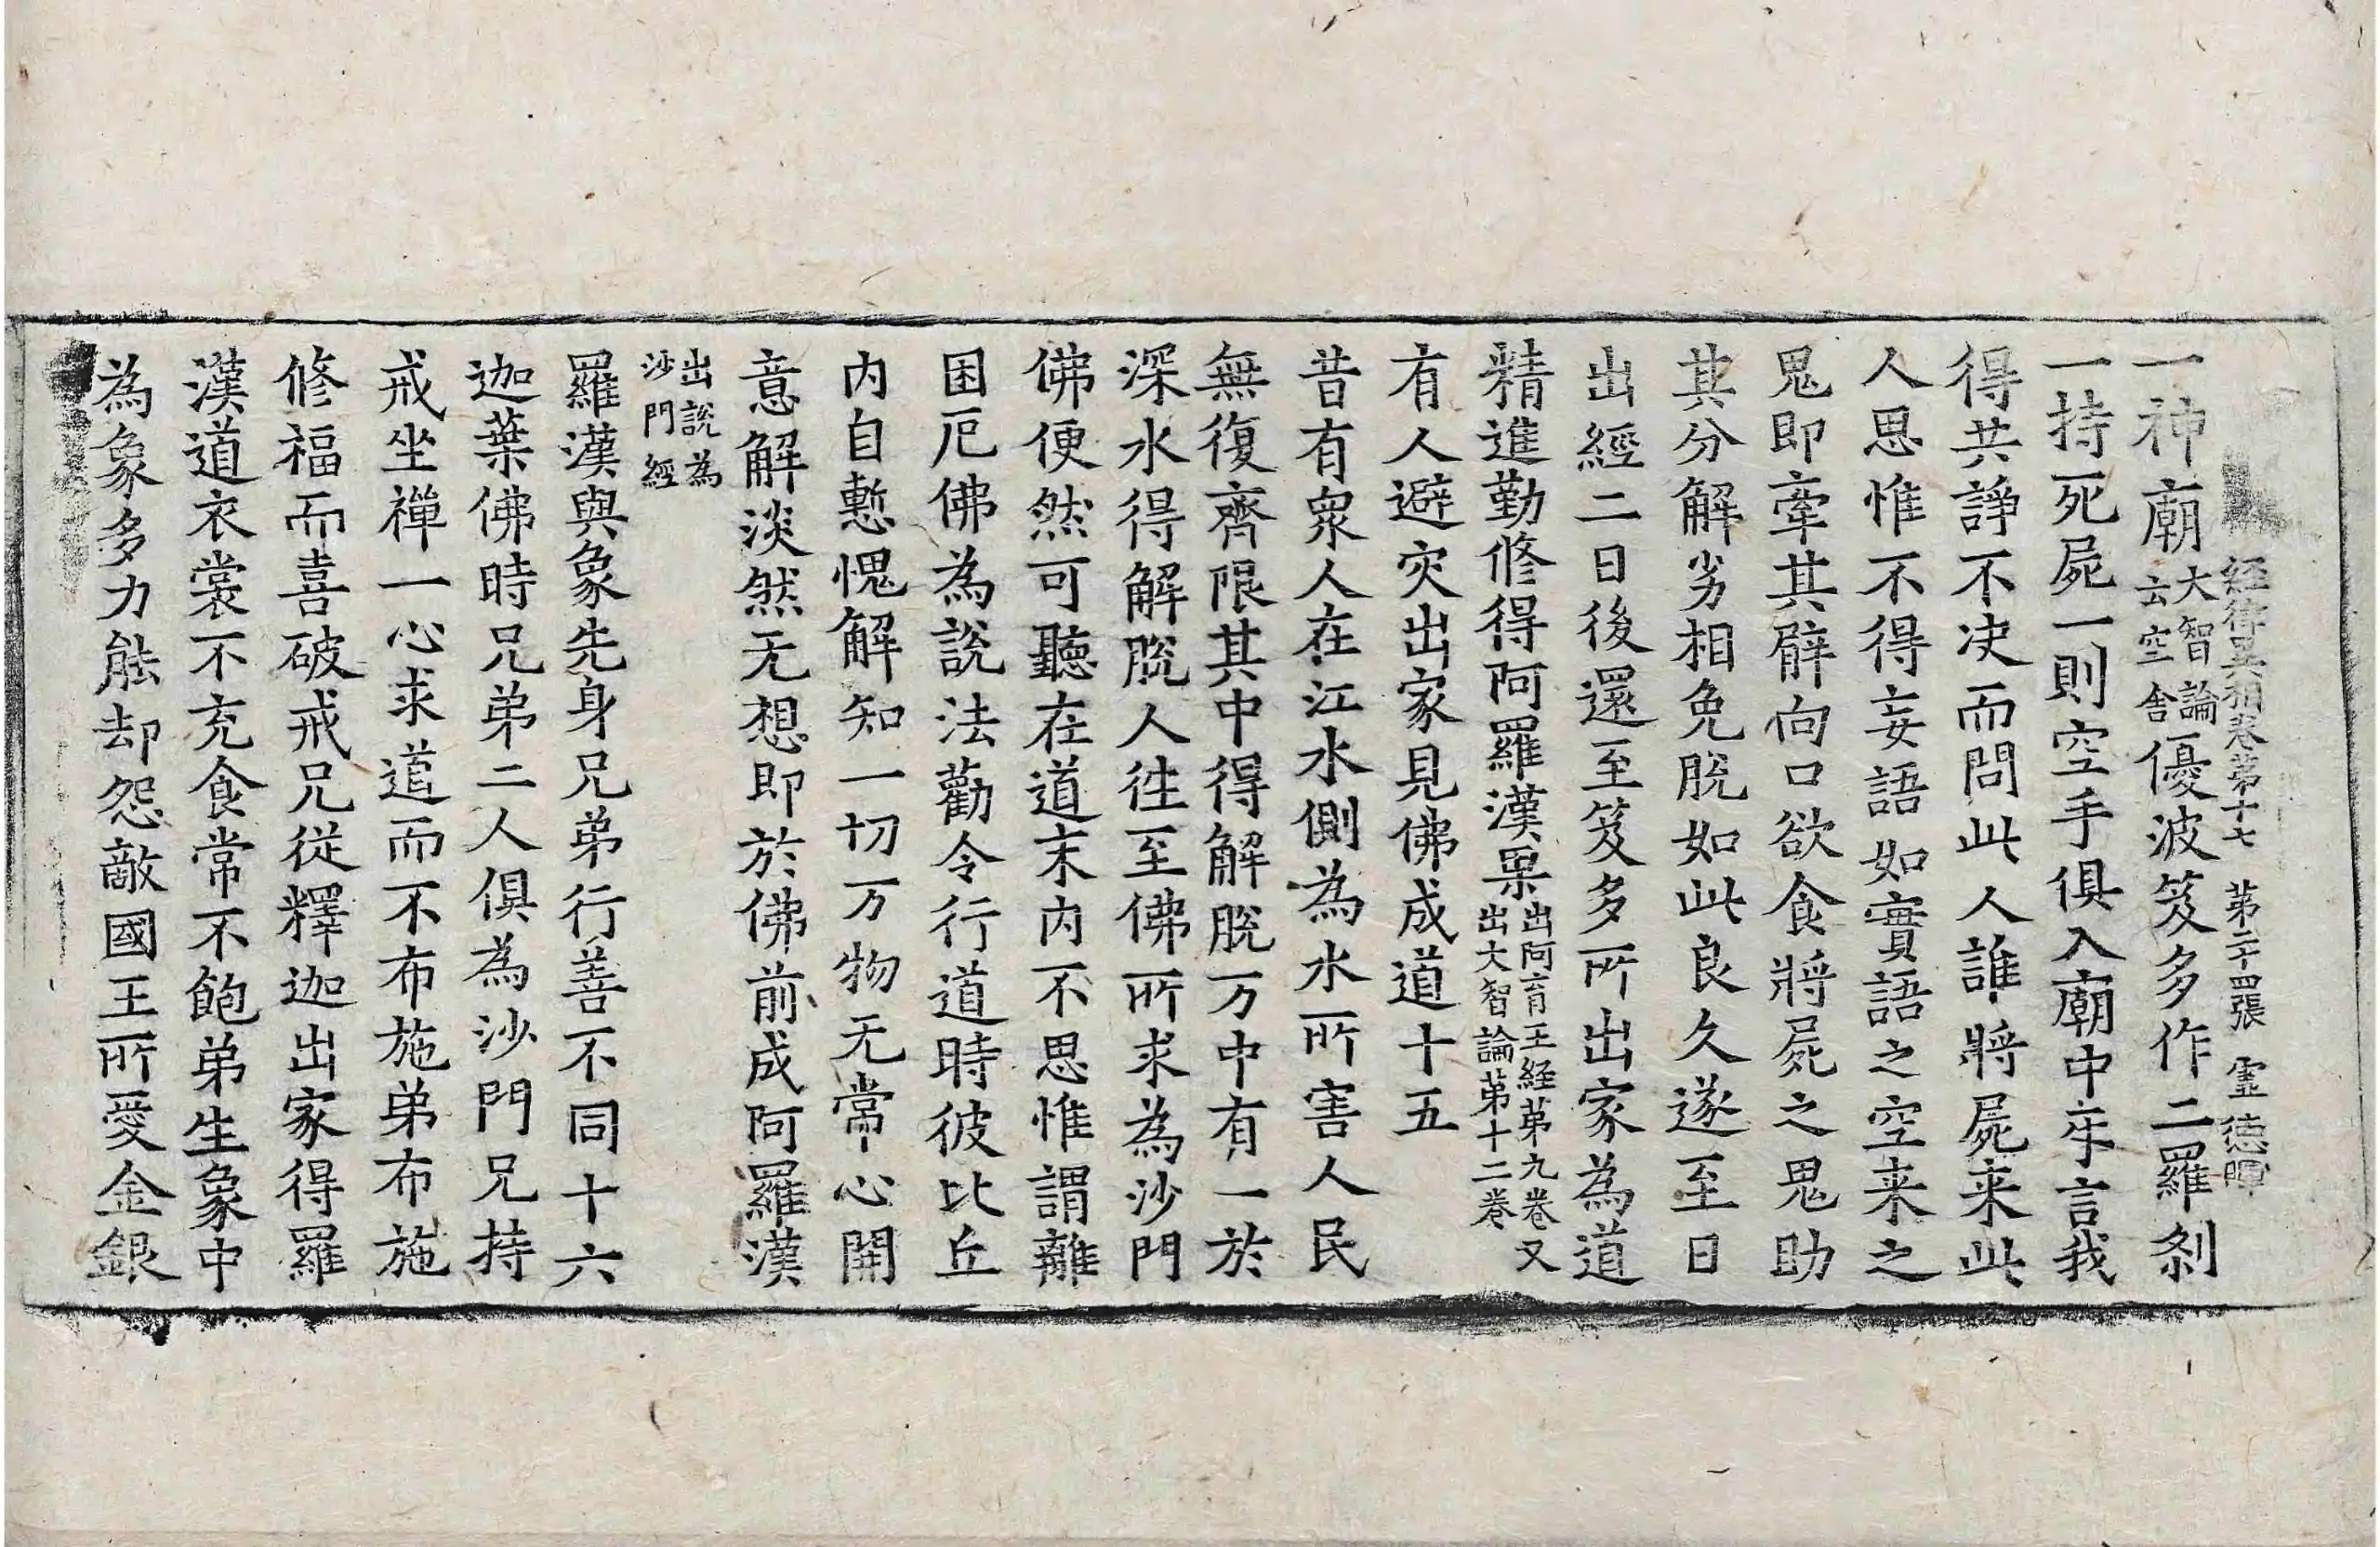 經律異相卷第十七 第二十四張 霊 德暉
一神廟大智論云空舍優波笈多作二羅刹
一持死屍一則空手俱入廟中㸦言我
得共諍不決而問此人誰將屍来此
人思惟不得妄語如實語之空来之
鬼即牽其臂向口欲食將屍之鬼助
其分解劣相免脫如此良久遂至日
出經二日後還至笈多所出家為道
精進勤修得阿羅漢果出阿育王経第九卷又出大智論第十二卷
有人避灾出家見佛成道十五
昔有衆人在江水側為水所害人民
無復齊限其中得解脫万中有一於
深水得解脫人往至佛所求為沙門
佛便然可聽在道末内不思惟謂離
困厄佛為說法勸令行道時彼比丘
内自慙愧解知一切万物无常心開
意解淡然无想即於佛前成阿羅漢
出說為沙門經
羅漢與象先身兄弟行善不同十六
迦葉佛時兄弟二人俱為沙門兄持
戒坐禪一心求道而不布施弟布施
修福而喜破戒兄從釋迦出家得羅
漢道衣裳不充食常不飽弟生象中
為象多力能却怨敵國王所愛金銀